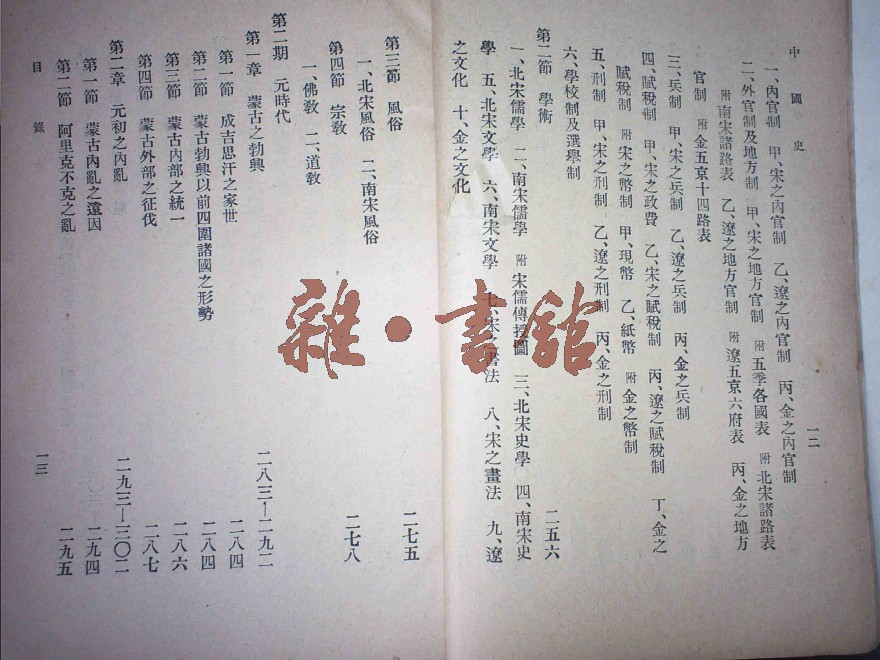 中國史
一二
一、內官制　甲、宋之內官制　乙、遼之內官制　丙、金之內官制
二、外官制及地方制　甲、宋之地方官制　附五季各國表　附北宋諸路表
附南宋諸路表　乙、遼之地方官制　附遼五京六府表　丙、金之地方
官制　附金五京十四路表
三、兵制　甲、宋之兵制　乙、遼之兵制　丙、金之兵制
四、賦稅制　甲、宋之政費　乙、宋之賦稅制　丙、遼之賦稅制　丁、金之
賦稅制　附宋之幣制　甲、現幣　乙、紙幣　附金之幣制
五、刑制　甲、宋之刑制　乙、遼之刑制　丙、金之刑制
六、學校制及選舉制
第二節　學術　二五六
一、北宋儒學　二、南宋儒學　附宋儒傳授圖　三、北宋史學　四、南宋史
學　五、北宋文學　六、南宋文學　七、宋之書法　八、宋之畫法　九、遼
之文化　十、金之文化
第三節　風俗　二七五
一、北宋風俗　二、南宋風俗
第四節　宗教　二七八
一、佛教　二、道教
第二期　元時代
第一章　蒙古之勃興　二八三—二九二
第一節　成吉思汗之家世　二八四
第二節　蒙古勃興以前四圍諸國之形勢　二八四
第三節　蒙古內部之統一　二八六
第四節　蒙古外部之征伐　二八七
第二章　元初之內亂　二九三—三〇二
第一節　蒙古內亂之遠因　二九四
第二節　阿里克不克之亂　二九五
目錄
一三
雜·書館